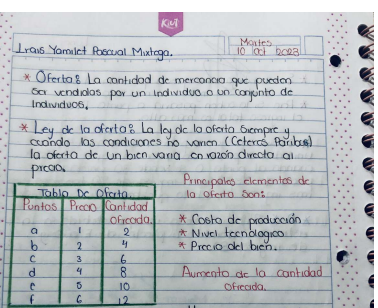 KIUT
Martes
10 Oct 2023
Irais Yamilet Pascual Mixtega.
* Oferta: La cantidad de mercancia que pueden
ser vendidas por un individuo o un conjunto de
individuos.
* Ley de la oferta: La ley de la oferta siempre y
cuando las condiciones no varien (Ceteros Paribus)
la oferta de un bien varia en razón directa al
precio.
Tabla De Oferta.
Puntos Precio Cantidad
Ofrecida.
a 1 2
b 2 4
c 3 6
d 4 8
e 5 10
f 6 12
Principales elementos de
la oferta son:
* Costo de producción
* Nivel tecnologico
* Precio del bien.
Aumento de la cantidad
ofrecida.